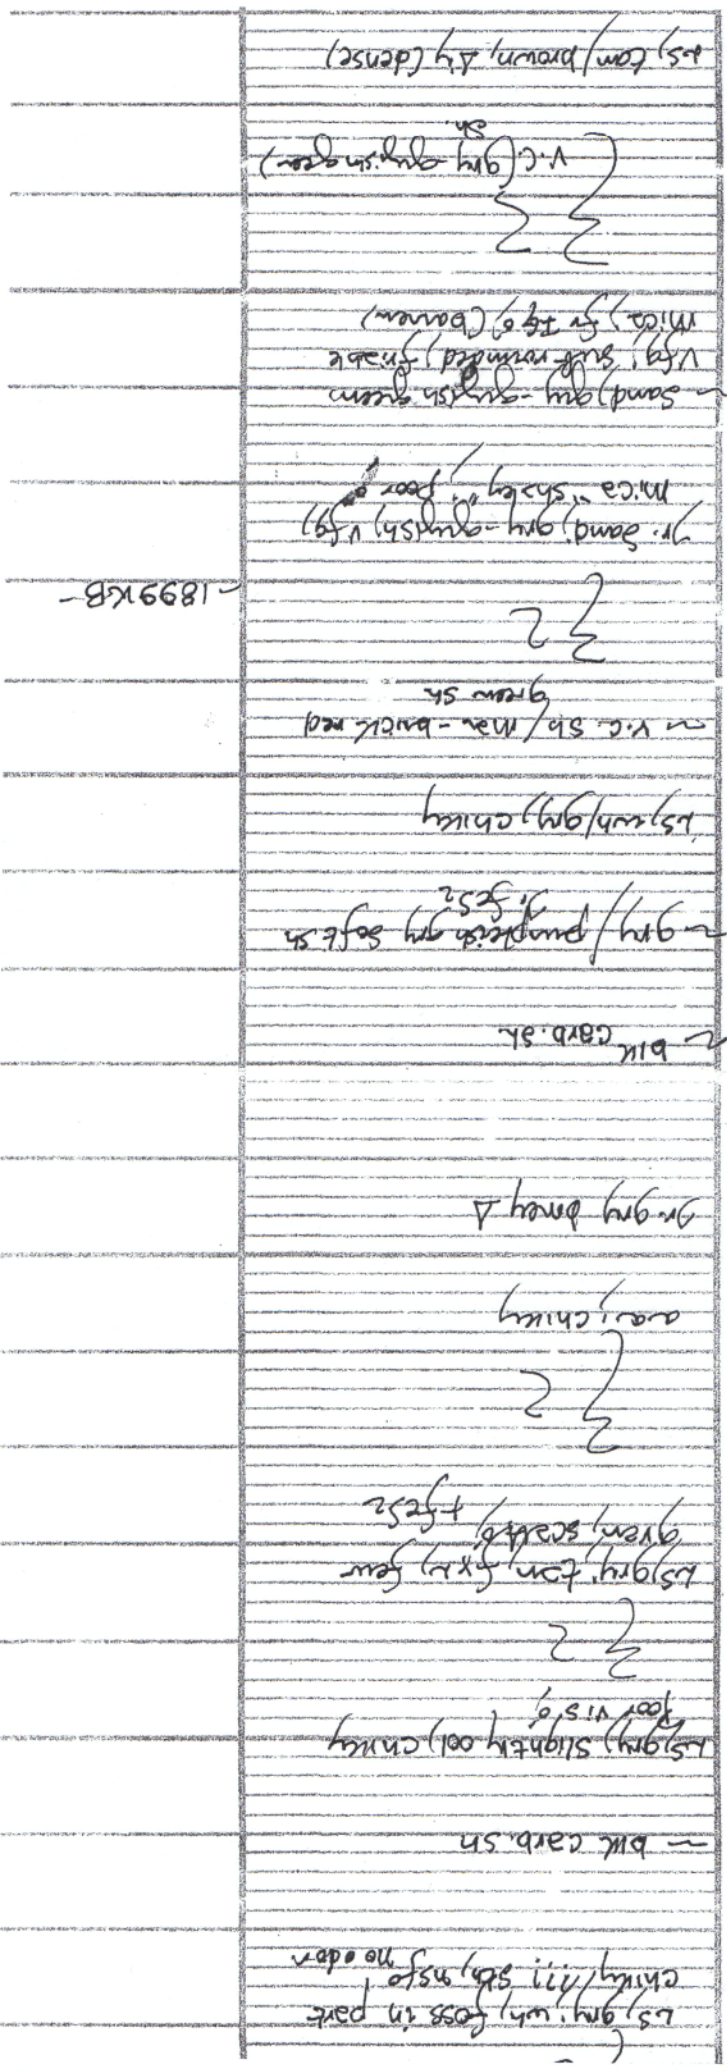 LS, gry; wh, foss in part
chlky, stn, nsfo, no odor
~ blk carb. sh
LS, gry, slightly ool, chlky
poor vis ø,
LS, gry; tan, fxln, few
gran, scatt ø, + feS2
a.a; chlky
Tr. gry boney Δ
~ blk carb. sh
~ gry/purplish gry soft sh
Tr. feS2
LS, wh/gry, chlky
~ v.c. sh/mar-brick red
green sh
-1899 KB-
Tr. Sand, gry-gryish, vfg
mica "shaley", poor ø
~ Sand, gry-gryish green
vfg, sub rounded, friable
mica, fr Ig ø, (barren)
v.c. (gry-gryish green)
sh.
LS, tan/brown, Δ'y (dense)